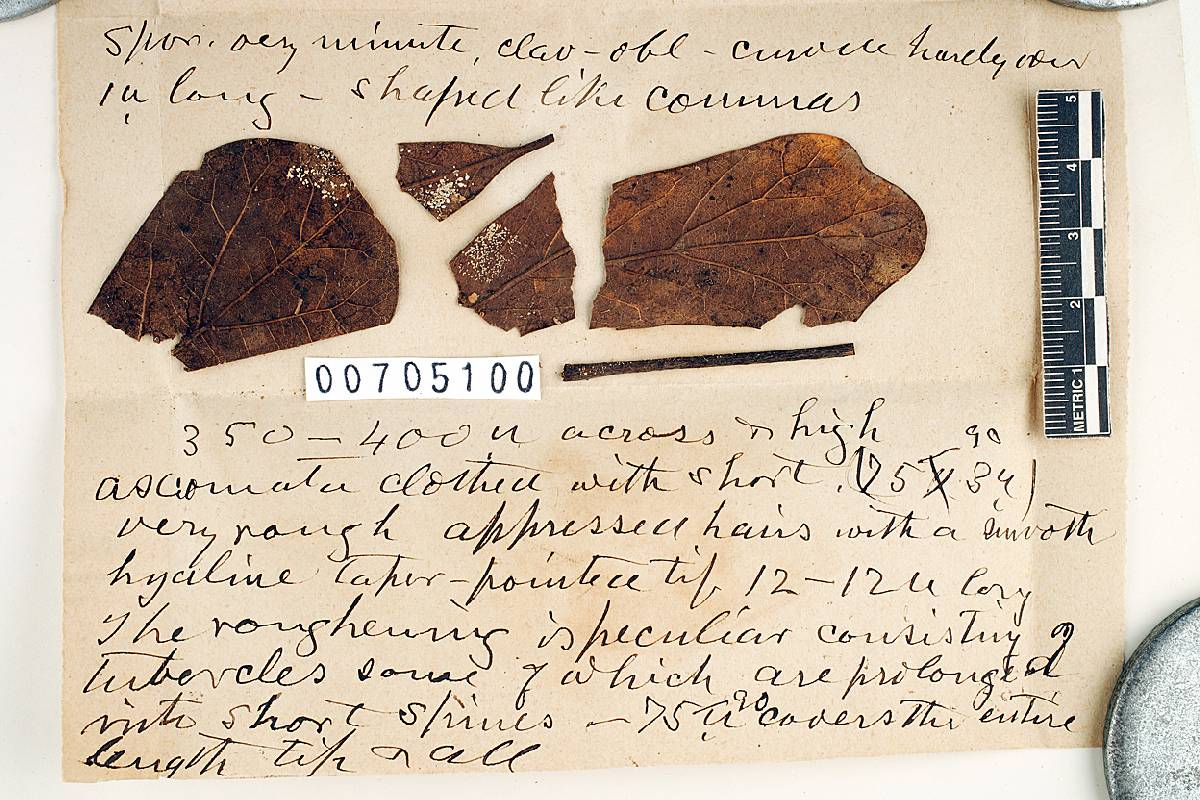 Spor. very minute, clav-obl - curved hardly over
1 µ long - shaped like commas
5
4
3
2
METRIC 1
00705100
350-400 µ across & high
90
ascomata clothed with short (75 x 3µ)
very rough appressed hairs with a smooth
hyaline taper-pointed tip 12-12 µ long
The roughening is peculiar consisting of
tubercles some of which are prolonged
90
into short spines - 75 µ covers the entire
length tip & all